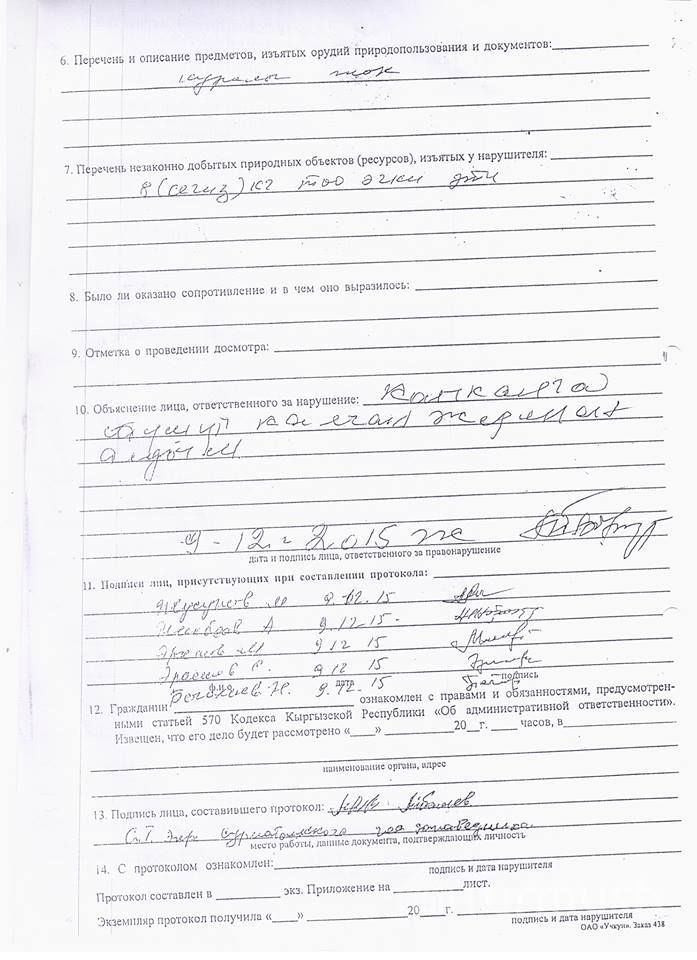 6. Перечень и описание предметов, изъятых орудий природопользования и документов:
куралы жок
7. Перечень незаконно добытых природных объектов (ресурсов), изъятых у нарушителя:
8 (сегиз) кг тоо эчки эти
8. Было ли оказано сопротивление и в чем оно выразилось:
9. Отметка о проведении досмотра:
10. Объяснение лица, ответственного за нарушение: Капканга
түшүп калган жеринен
алдым
9-12-2015
дата и подпись лица, ответственного за правонарушение
11. Подписи лиц, присутствующих при составлении протокола:
9.12.15
А 9.12.15
9 12 15
9 12 15
9.12.15
дата
подпись
12. Гражданин ознакомлен с правами и обязанностями, предусмотрен-
ными статьей 570 Кодекса Кыргызской Республики «Об административной ответственности».
Извещен, что его дело будет рассмотрено «____» ___________20__г. ____ часов, в
наименование органа, адрес
13. Подпись лица, составившего протокол:
гос заповедника
место работы, данные документа, подтверждающих личность
14. С протоколом ознакомлен:
подпись и дата нарушителя
Протокол составлен в __________ экз. Приложение на __________лист.
Экземпляр протокол получила «____» ________________20____г.
подпись и дата нарушителя
ОАО «Учкун». Заказ 438